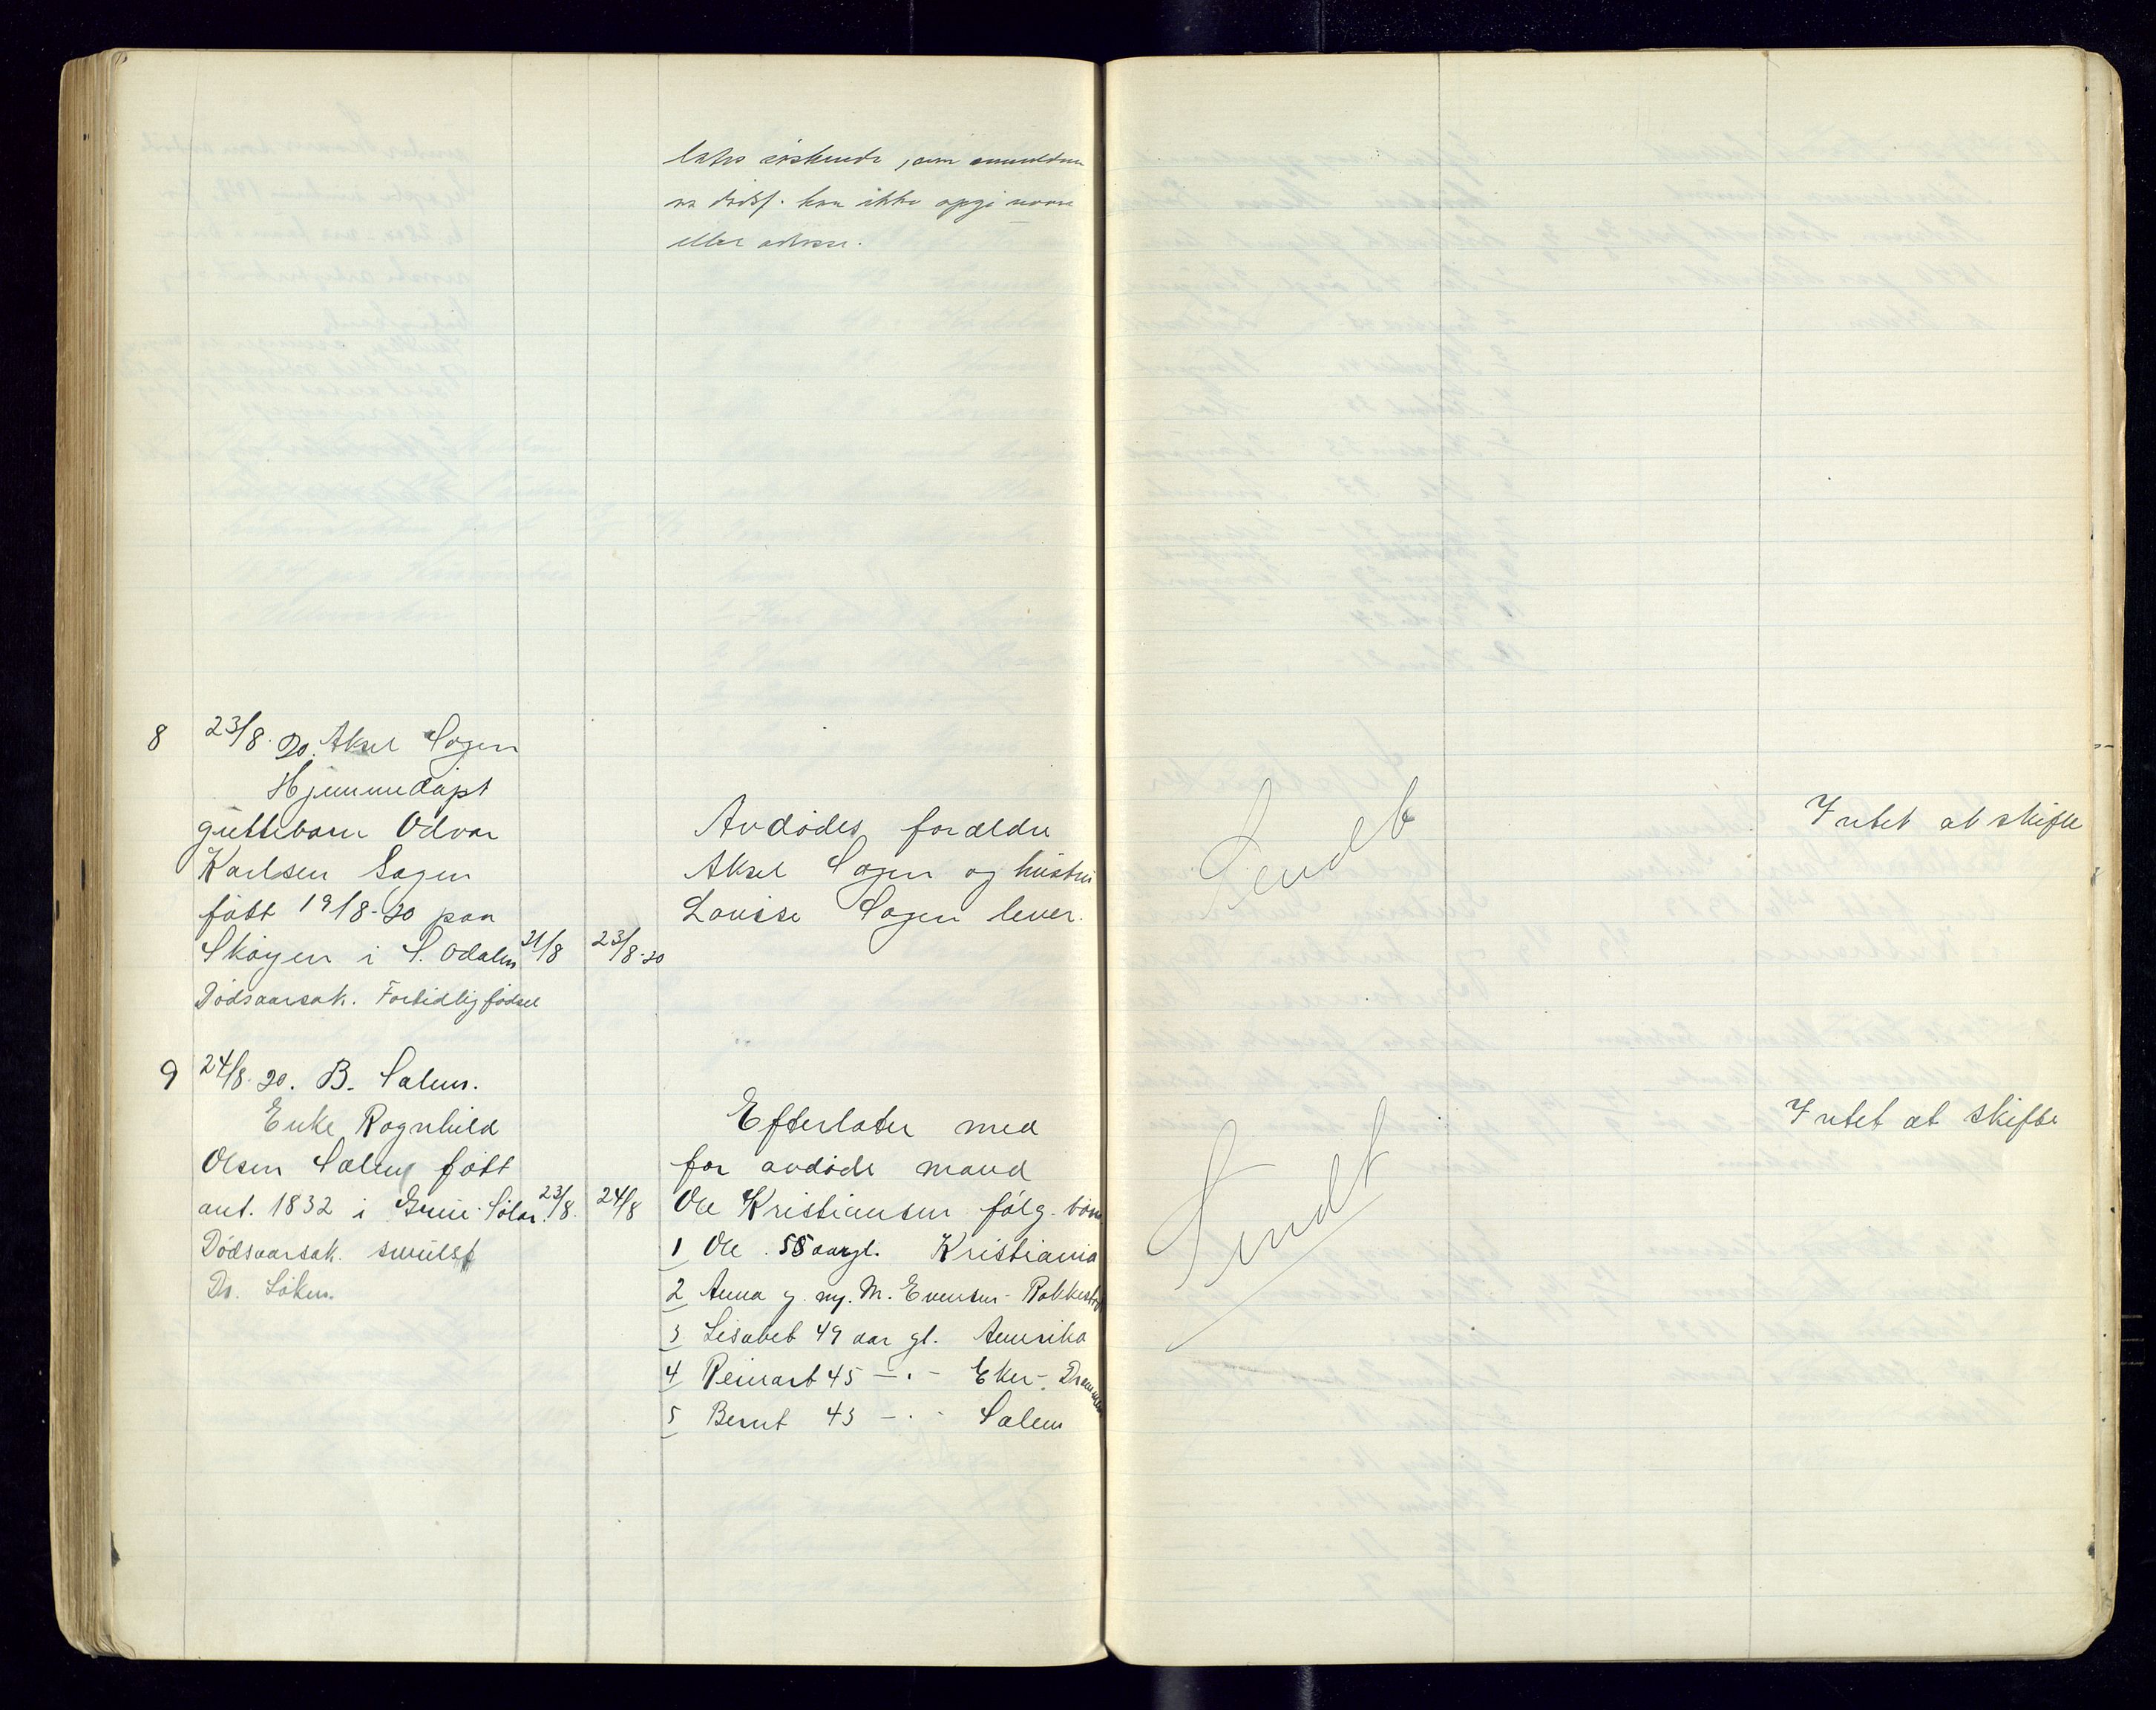 lates søskende, som anmelderen
av dødsf. kan ikke opgi navne
eller adresse.
8 23/8-20. Aksel Sagen
Hjemmedøpt
guttebarn Odvar
Karlsen Sagen
født 19/8-20 paa
Skøyen i S. Odalen 21/8 23/8-20
Dødsaarsak. Fortidlig fødsel
Avdødes forældre
Aksel Sagen og hustru
Lovise Sagen lever.
Sendt
Intet at skifte
9 24/8-20. B. Salem.
Enke Ragnhild
Olsen Salem født
ant. 1832 i Grue Solør. 23/8. 24/8
Dødsaarsak. svulst
Dr. Løken.
Efterlater med
før avdøde mand
Ole Kristiansen følg. børn
1 Ole 55 aargl. Kristiania
2 Anna g. m. M. Evensen - Rakkestad
3 Lisabet 49 aar gl. Amerika
4 Reinart 45 -.- Eker - Drammen
5 Bernt 43 -.- Salem
Sendt
Intet at skifte